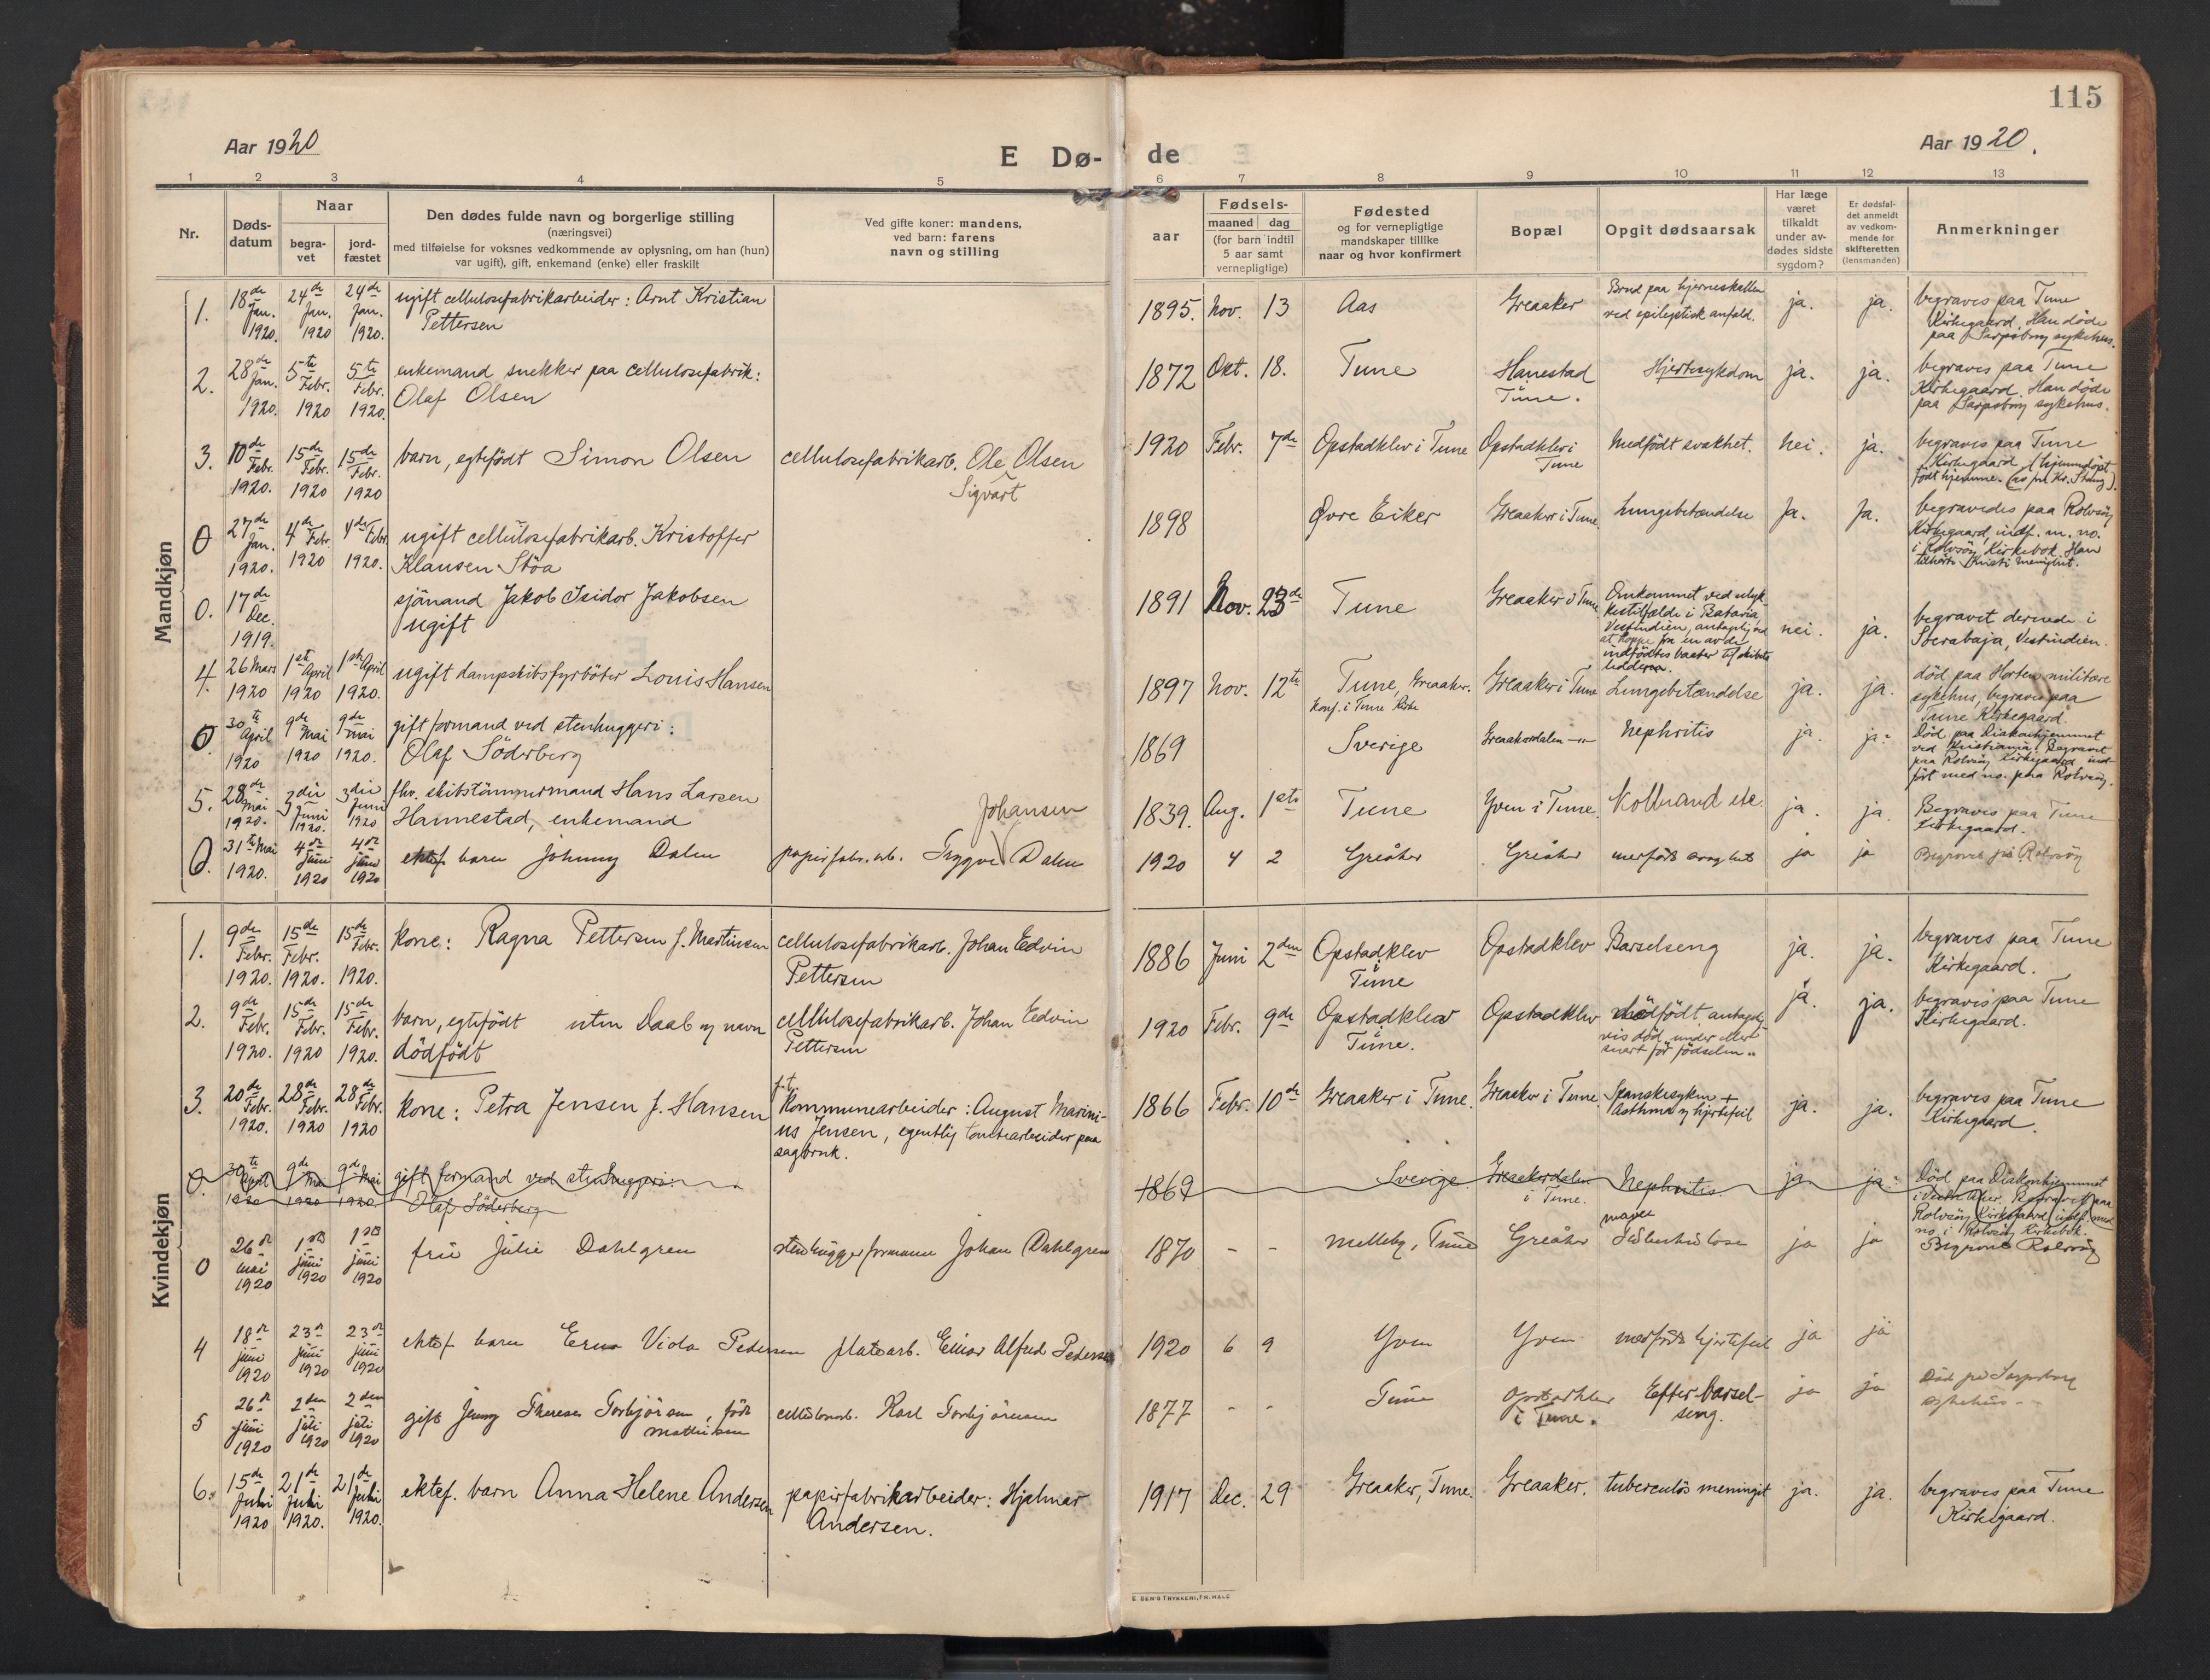 115
Aar 1920
E Dø-
de
Aar 1920.
1 2 3 4 5 6 7 8 9 10 11 12 13
Nr.
Døds-
datum
Naar
begra-
vet
jord-
fæstet
Den dødes fulde navn og borgerlige stilling
(næringsvei)
med tilføielse for voksnes vedkommende av oplysning, om han (hun)
var ugift), gift, enkemand (enke) eller fraskilt
Ved gifte koner: mandens,
ved barn: farens
navn og stilling
aar
Fødsels-
maaned dag
(for barn indtil
5 aar samt
vernepligtige)
Fødested
og for vernepligtige
mandskaper tillike
naar og hvor konfirmert
Bopæl
Opgit dødsaarsak
Har læge
været
tilkaldt
under av-
dødes sidste
sygdom?
Er dødsfal-
det anmeldt
av vedkom-
mende for
skifteretten
(lensmanden)
Anmerkninger
Mandkjøn
1.
18de Jan. 1920.
24de Jan. 1920
24de Jan. 1920.
ugift cellulosefabrikarbeider: Arnt Kristian
Pettersen
1895. Nov. 13 Aas Greaaker
Brud paa hjerneskallen
ved epileptisk anfald.
ja. ja.
begraves paa Tune
Kirkegaard. Han døde
paa Sarpsborg sykehus.
2.
28de Jan. 1920.
5te Febr. 1920
5te Febr. 1920.
enkemand snekker paa cellulosefabrik:
Olaf Olsen
1872 Okt. 18. Tune
Hanestad
Tune.
Hjertesykdom ja. ja.
begraves paa Tune
Kirkegaard. Han døde
paa Sarpsborg sykehus.
3.
10de Febr. 1920.
15de Febr. 1920
15de Febr. 1920
barn, egtefødt Simon Olsen
cellulosefabrikarb. Ole Olsen
Sigvart
1920 Febr. 7de Opstadklev i Tune
Opstadklev i
Tune
Medfødt svakhet. Nei. ja.
begraves paa Tune
Kirkegaard (hjemmedøpt
født hjemme.
0
27de Jan. 1920.
4de Febr. 1920
4de Febr. 1920.
ugift cellulosefabrikarb. Kristoffer
Klausen Stöa
1898 Øvre Eiker Greaaker i Tune. Lungebetændelse Ja. Ja.
begravedes paa Rolvsøy
Kirkegaard, indf. m. no.
i Rolvsøy Kirkebok. Han
tilhørte Kristi menighet.
0.
17de Dec. 1919.
sjömand Jakob Isidor Jakobsen
ugift
1891 Nov. 23de Tune Greaaker i Tune
Omkommet ved ulyk-
kestilfælde i Batavia,
Vestindien, antagelig ved
at hoppe fra en av de
indfødtes baater til skibets
nei. ja.
begravet dernede i
Soerabaja, Vestindien.
4.
26 Mars 1920
1ste April 1920
1ste April 1920.
ugift dampskibsfyrböter Louis Hansen
1897 Nov. 12te
Tune, Greaaker.
Konf. i Tune Kirke
Greaaker i Tune Lungebetændelse ja. ja.
død paa Horten militære
sykehus, begraves paa
Tune Kirkegaard.
0.
30te April 1920
9de Mai 1920
9de Mai 1920.
gift formand ved stenhuggeri:
Olaf Söderberg
1869 Sverige Greaakerdalen Nephritis ja. ja.
Død paa Diakonhjemmet
ved Kristiania. Begravet
paa Rolvsøy Kirkegaard ind-
ført med no. paa Rolvsøy.
5.
28de Mai 1920.
3die Juni 1920.
3die Juni 1920
fhv. skibstömmermand Hans Larsen
Hannestad, enkemand
1839. Aug. 1ste Tune Yven i Tune. Kolbrand etc. ja. ja.
Begraves paa Tune
Kirkegaard.
0.
31te Mai 1920.
4de juni 1920
4de juni 1920
ektef. barn Johnny Dalen
Johansen
papirfabr. arb. Trygve Dalen
1920 4 2 Greåker Greåker medfødt svaghet ja ja
Begravet på Rolvsøy
Kvindekjøn
1.
9de Febr. 1920.
15de Febr. 1920.
15de Febr. 1920.
kone: Ragna Pettersen f. Martinsen
cellulosefabrikarb. Johan Edvin
Pettersen
1886 Juni 2den
Opstadklev
i
Tune
Opstadklev Barselseng ja. ja.
begraves paa Tune
Kirkegaard.
2.
9de Febr. 1920.
15de Febr. 1920
15de Febr. 1920.
barn, egtefødt uten Daab og navn
dödfödt
cellulosefabrikarb. Johan Edvin
Pettersen
1920 Febr. 9de
Opstadklev
i
Tune.
Opstadklev
dödfödt antagelig-
vis död under eller
snart för födselen..
ja. ja.
begraves paa Tune
Kirkegaard.
3.
20de Febr. 1920.
28de Febr. 1920
28de Febr. 1920
kone: Petra Jensen f. Hansen
f.t.
Kommunearbeider: August Marini-
us Jensen, egentlig tomtearbeider paa
sagbruk.
1866 Febr. 10de Greaaker i Tune. Greaaker i Tune
Spanskesyken +
Asthma og hjertefeil
ja. ja.
begraves paa Tune
Kirkegaard.
0.
30te April 1920
9de Mai 1920
9de Mai 1920.
gift formand ved stenhuggeri:
Olaf Söderberg
1869 Sverige
Greaakerdalen
i Tune.
Nephritis. ja ja.
Död paa Diakonhjemmet
i Vestre Aker. Begravet paa
Rolvsøy Kirkegaard, indf. med
no. i Rolvsøy Kirkebok.
0
26de mai 1920
1ste juni 1920
1ste juni 1920
fru Julie Dahlgren
stenhuggerformann Johan Dahlgren
1870 - - Melleby, Tune Greåker
mave
tuberkulose
ja ja
Begravet Rolvsøy
4
18de juni 1920
23de juni 1920
23de juni 1920
ektef. barn Erna Viola Pedersen
platearb. Einar Alfred Pedersen
1920 6 9 Yven Yven medfødt hjertefeil ja ja
5
26de juni 1920
2den juli 1920
2den juli 1920
gift Jenny Therese Torbjörnsen, född
Mathisen
cellulosearb. Karl Torbjörnsen
1877 - - Tune
Opstadklev
i Tune.
Efter Barsel-
seng.
ja ja
Död på Sarpsborg
sykehus
6.
15de Juli 1920
21de Juli 1920.
21de Juli 1920.
ektef. barn Anna Helene Andersen
papirfabrikarbeider: Hjalmar
Andersen.
1917 Dec. 29 Greaaker, Tune. Greaaker. tuberculös meningit ja. ja.
begraves paa Tune
Kirkegaard.